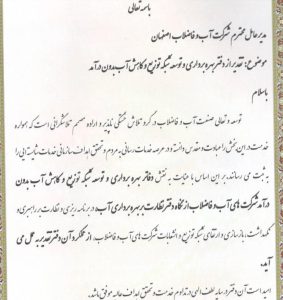 باسمه تعالی
مدیرعامل محترم شرکت آب و فاضلاب اصفهان
موضوع: تقدیر از دفتر بهره برداری و توسعه شبکه توزیع و کاهش آب بدون درآمد
باسلام
توسعه و تعالی صنعت آب و فاضلاب در گرو تلاش خستگی ناپذیر و اراده مصمم تلاشگرانی است که همواره
خدمت در این بخش را عبادت و مقدس دانسته و در عرصه خدمات رسانی به مردم و تحقق اهداف سازمانی خدمات شایانی را
به ثبت می رسانند. بر این اساس با عنایت به نقش دفاتر بهره برداری و توسعه شبکه توزیع و کاهش آب بدون
درآمد شرکت های آب و فاضلاب از نگاه دفتر نظارت بر بهره برداری آب در برنامه ریزی و نظارت بر راهبری و
نگهداشت، بازسازی و ارتقای شبکه توزیع و انشعابات شرکت های آب و فاضلاب، از عملکرد آن دفتر تقدیر به عمل می
آید.
امید است آن دفتر در سایه لطف الهی در تداوم خدمت و تحقق اهداف عالیه موفق باشد.